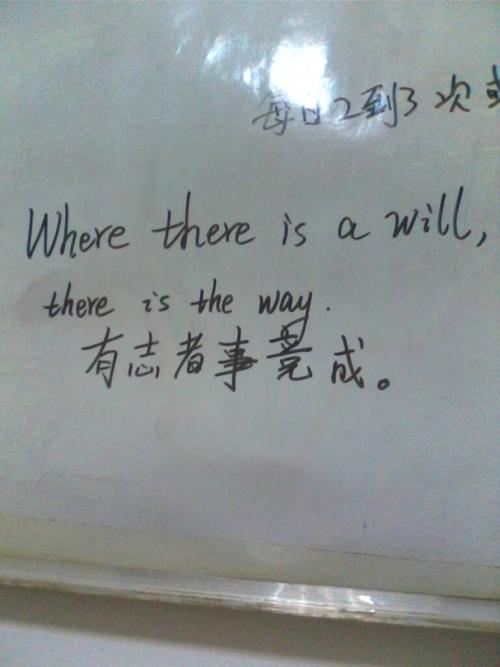 每日2到3次
Where there is a will,
there is the way.
有志者事竟成。